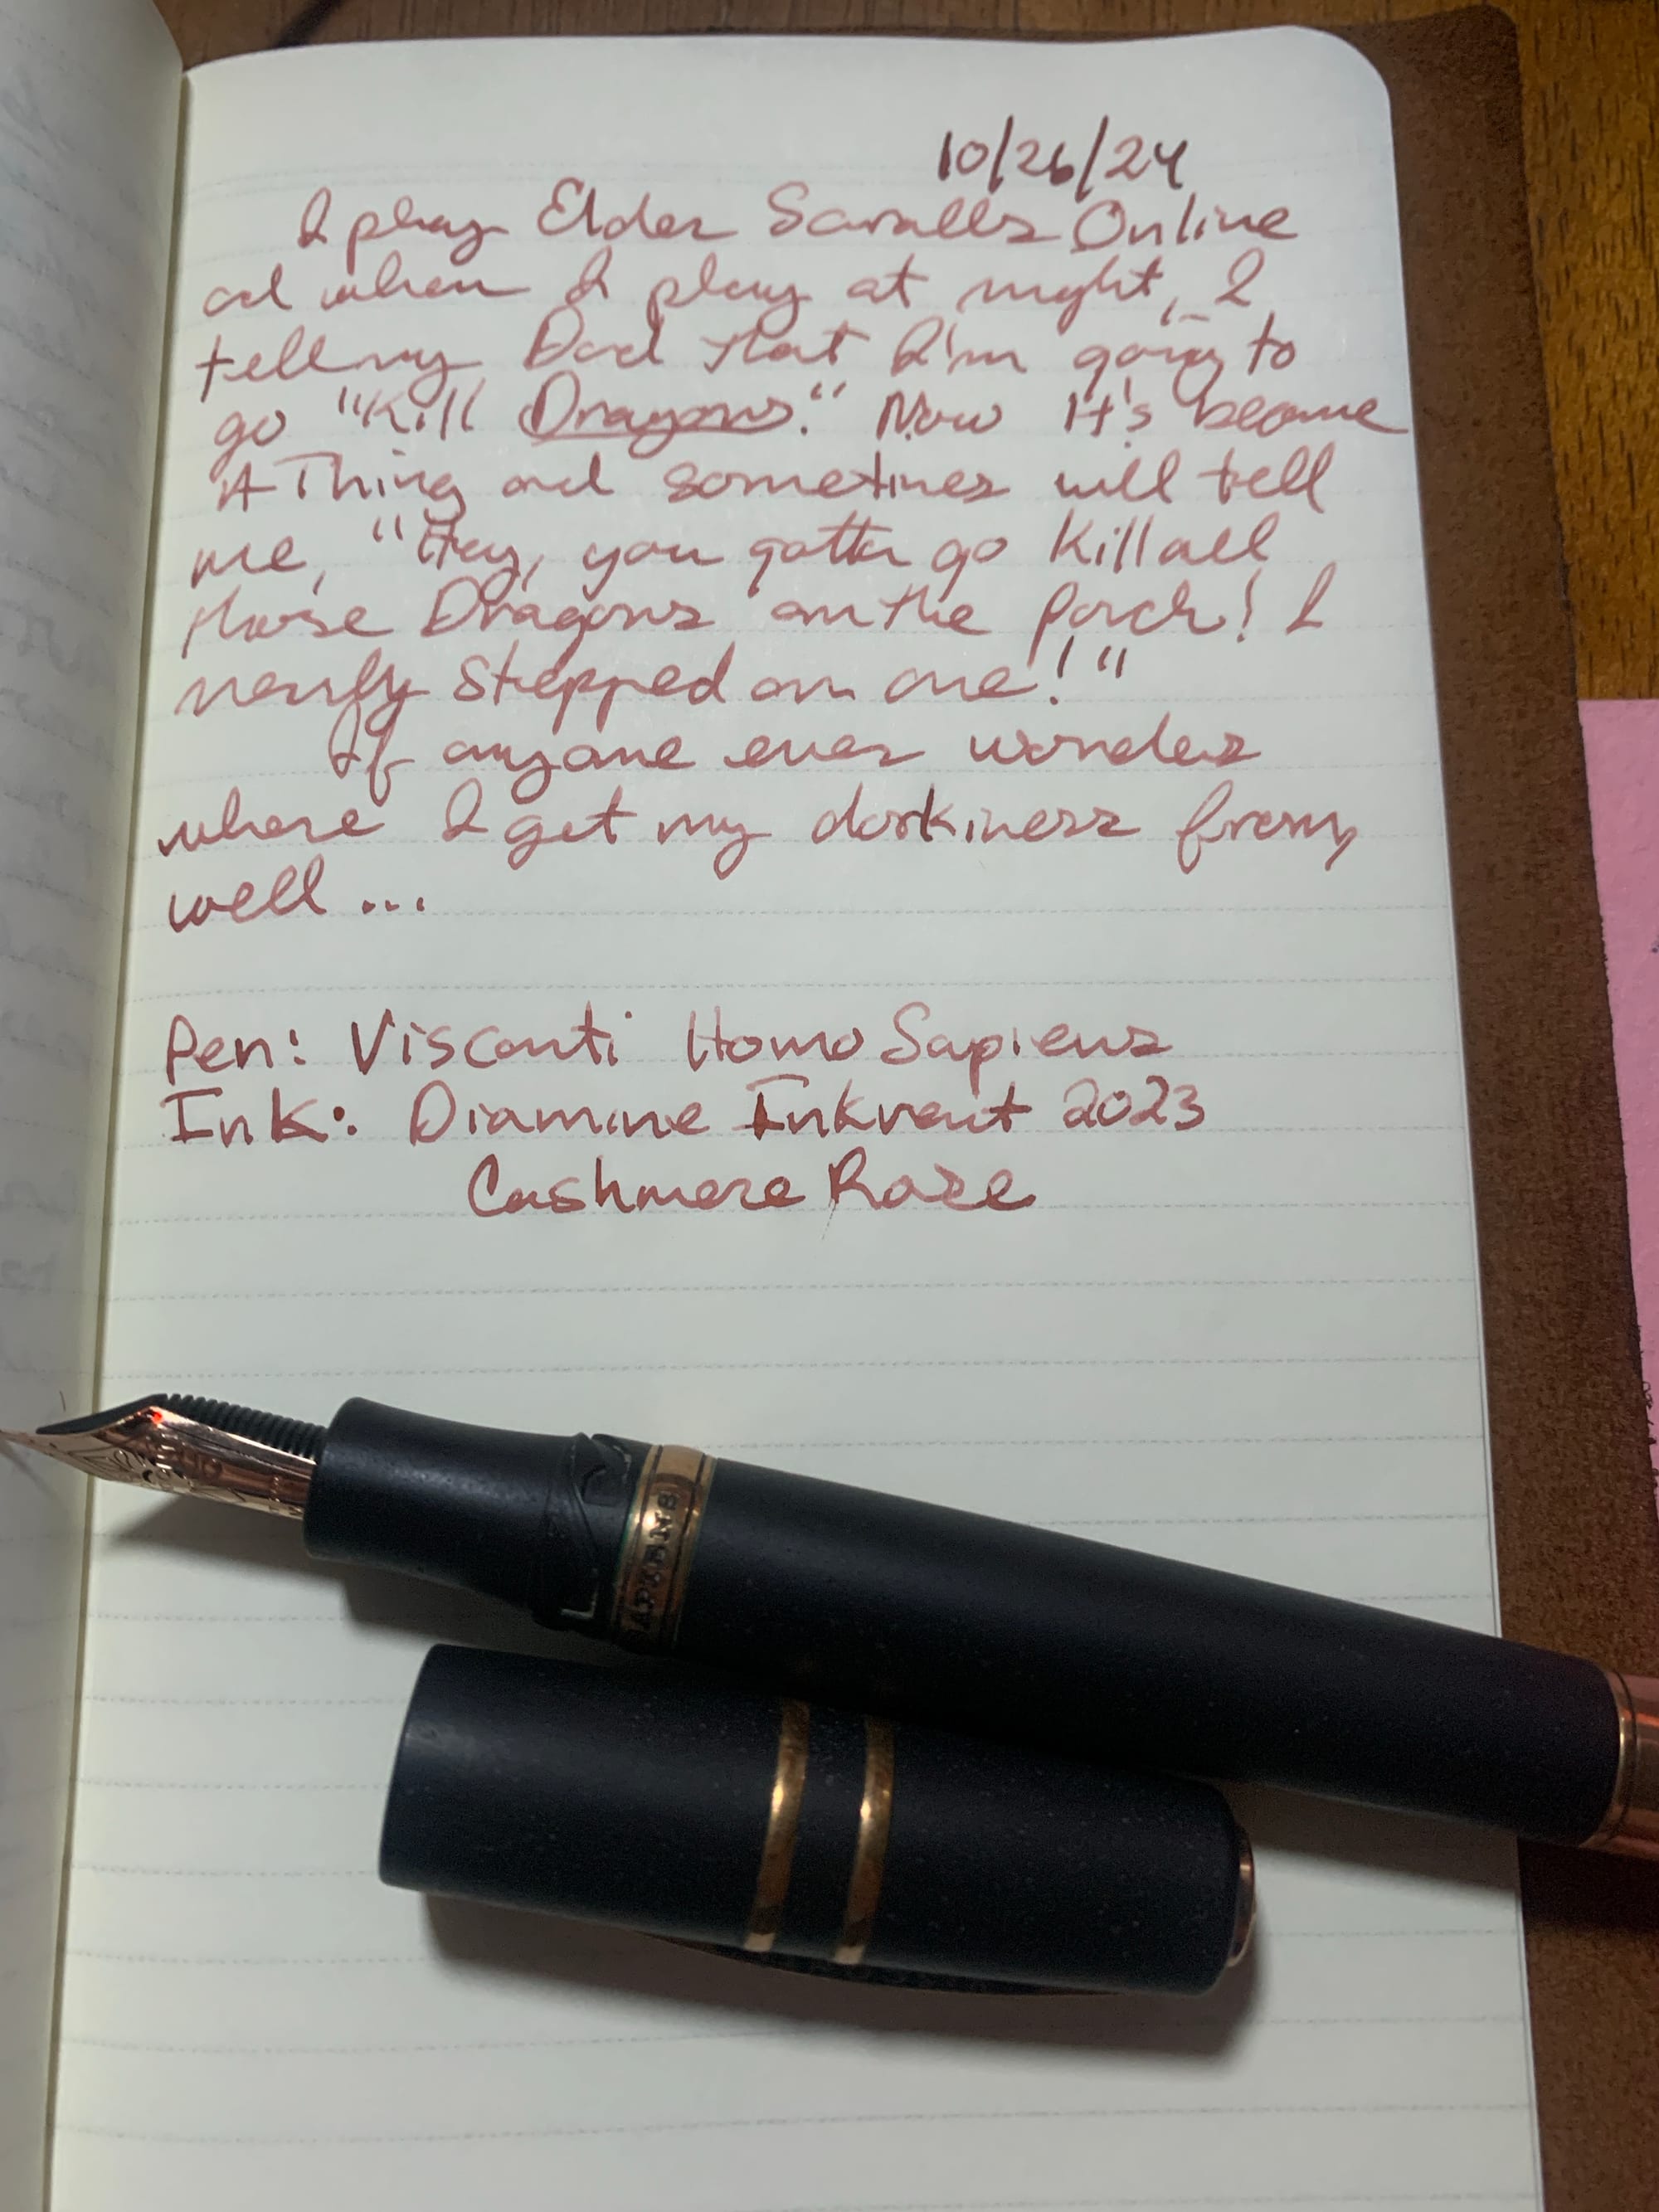 10/26/24
I play Elder Scrolls Online
and when I play at night, I
tell my Dad that I'm going to
go "Kill Dragons." Now it's become
A Thing and sometimes will tell
me, "Hey, you gotta go Kill all
those Dragons on the Porch! I
nearly stepped on one!"
If anyone ever wonders
where I get my dorkiness from,
well...
Pen: Visconti Homo Sapiens
Ink: Diamine Inkvent 2023
Cashmere Rose
APIENS